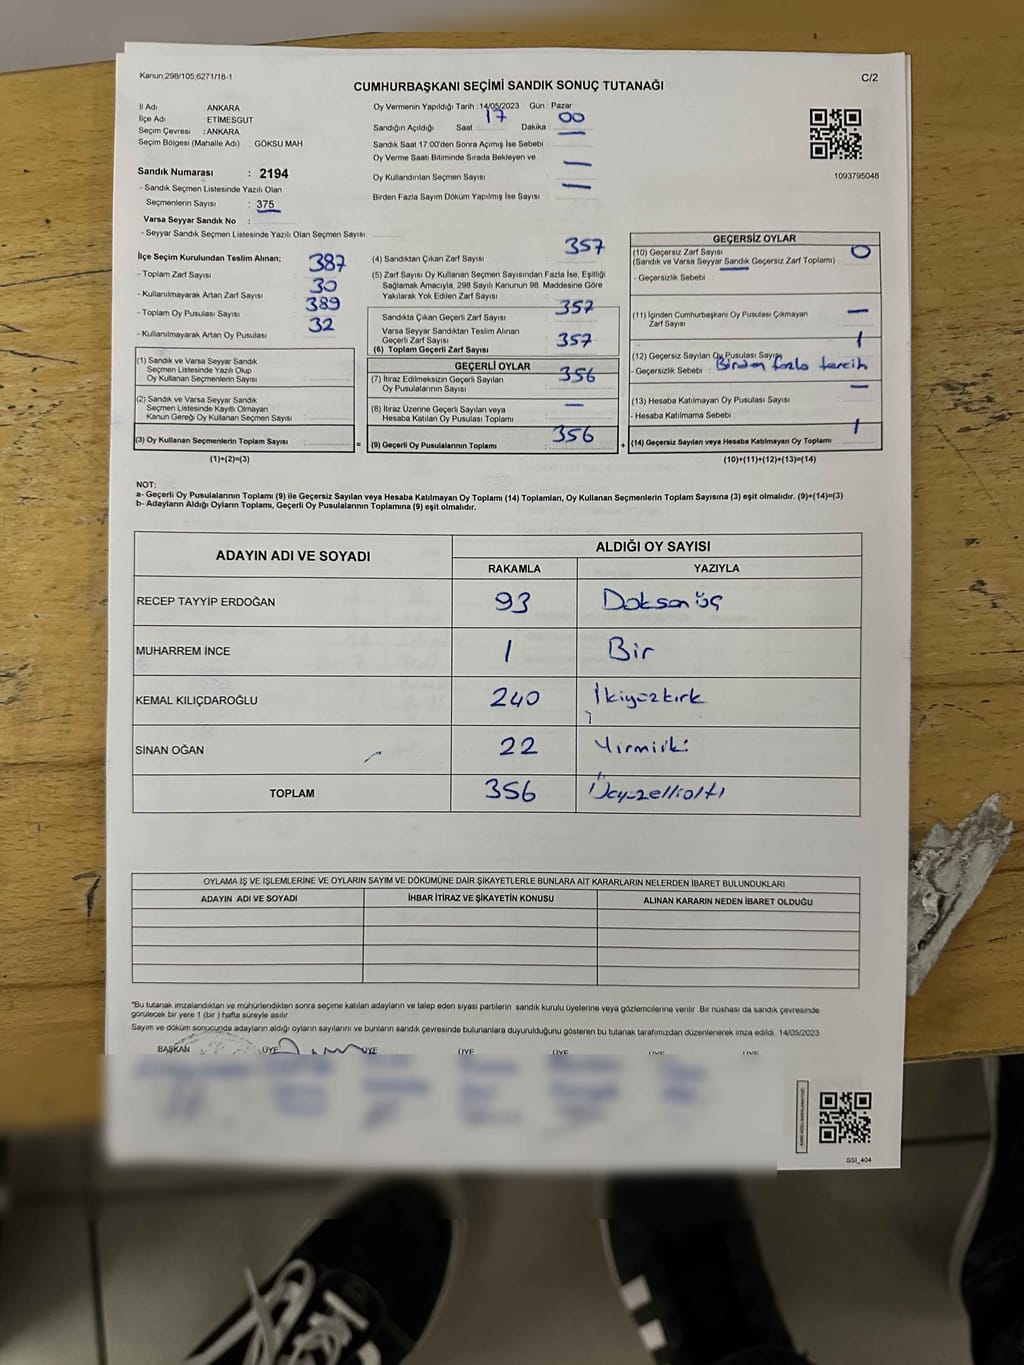 Kanun:298/105,6271/18-1
C/2
CUMHURBAŞKANI SEÇİMİ SANDIK SONUÇ TUTANAĞI
İl Adı ANKARA
İlçe Adı ETİMESGUT
Seçim Çevresi : ANKARA
Seçim Bölgesi (Mahalle Adı) : GÖKSU MAH.
Oy Vermenin Yapıldığı Tarih : 14/05/2023 Gün : Pazar
Sandığın Açıldığı Saat : 17 Dakika : 00
Sandık Saat 17:00'den Sonra Açımış İse Sebebi :
Oy Verme Saati Bitiminde Sırada Bekleyen ve
Oy Kullandırılan Seçmen Sayısı : —
Birden Fazla Sayım Döküm Yapılmış İse Sayısı : —
1093795048
Sandık Numarası : 2194
- Sandık Seçmen Listesinde Yazılı Olan
Seçmenlerin Sayısı : 375
Varsa Seyyar Sandık No :
- Seyyar Sandık Seçmen Listesinde Yazılı Olan Seçmen Sayısı:
İlçe Seçim Kurulundan Teslim Alınan;
- Toplam Zarf Sayısı : 387
- Kullanılmayarak Artan Zarf Sayısı : 30
- Toplam Oy Pusulası Sayısı : 389
- Kullanılmayarak Artan Oy Pusulası : 32
(1) Sandık ve Varsa Seyyar Sandık
Seçmen Listesinde Yazılı Olup
Oy Kullanan Seçmenlerin Sayısı :
(2) Sandık ve Varsa Seyyar Sandık
Seçmen Listesinde Kayıtlı Olmayan
Kanun Gereği Oy Kullanan Seçmen Sayısı :
(3) Oy Kullanan Seçmenlerin Toplam Sayısı :
(1)+(2)=(3)
(4) Sandıktan Çıkan Zarf Sayısı : 357
(5) Zarf Sayısı Oy Kullanan Seçmen Sayısından Fazla İse, Eşitliği
Sağlamak Amacıyla, 298 Sayılı Kanunun 98. Maddesine Göre
Yakılarak Yok Edilen Zarf Sayısı :
Sandıkta Çıkan Geçerli Zarf Sayısı : 357
Varsa Seyyar Sandıktan Teslim Alınan
Geçerli Zarf Sayısı :
(6) Toplam Geçerli Zarf Sayısı : 357
GEÇERLİ OYLAR
(7) İtiraz Edilmeksizin Geçerli Sayılan
Oy Pusulalarının Sayısı : 356
(8) İtiraz Üzerine Geçerli Sayılan veya
Hesaba Katılan Oy Pusulası Toplamı : —
= (9) Geçerli Oy Pusulalarının Toplamı : 356
GEÇERSİZ OYLAR
(10) Geçersiz Zarf Sayısı
(Sandık ve Varsa Seyyar Sandık Geçersiz Zarf Toplamı) : 0
- Geçersizlik Sebebi :
(11) İçinden Cumhurbaşkanı Oy Pusulası Çıkmayan
Zarf Sayısı : —
(12) Geçersiz Sayılan Oy Pusulası Sayısı : 1
- Geçersizlik Sebebi : Birden fazla tercih
(13) Hesaba Katılmayan Oy Pusulası Sayısı : —
- Hesaba Katılmama Sebebi :
+ (14) Geçersiz Sayılan veya Hesaba Katılmayan Oy Toplamı : 1
(10)+(11)+(12)+(13)=(14)
NOT:
a- Geçerli Oy Pusulalarının Toplamı (9) ile Geçersiz Sayılan veya Hesaba Katılmayan Oy Toplamı (14) Toplamları, Oy Kullanan Seçmenlerin Toplam Sayısına (3) eşit olmalıdır. (9)+(14)=(3)
b- Adayların Aldığı Oyların Toplamı, Geçerli Oy Pusulalarının Toplamına (9) eşit olmalıdır.
ADAYIN ADI VE SOYADI ALDIĞI OY SAYISI
RAKAMLA YAZIYLA
RECEP TAYYİP ERDOĞAN 93 Doksanüç
MUHARREM İNCE 1 Bir
KEMAL KILIÇDAROĞLU 240 İkiyüzkırk
SİNAN OĞAN 22 Yirmiiki
TOPLAM 356 Üçyüzellialtı
OYLAMA İŞ VE İŞLEMLERİNE VE OYLARIN SAYIM VE DÖKÜMÜNE DAİR ŞİKAYETLERLE BUNLARA AİT KARARLARIN NELERDEN İBARET BULUNDUKLARI
ADAYIN ADI VE SOYADI İHBAR İTİRAZ VE ŞİKAYETİN KONUSU ALINAN KARARIN NEDEN İBARET OLDUĞU
*Bu tutanak imzalandıktan ve mühürlendikten sonra seçime katılan adayların ve talep eden siyasi partilerin sandık kurulu üyelerine veya gözlemcilerine verilir. Bir nüshası da sandık çevresinde
görülecek bir yere 1 (bir ) hafta süreyle asılır.
Sayım ve döküm sonucunda adayların aldığı oyların sayılarını ve bunların sandık çevresinde bulunanlara duyurulduğunu gösteren bu tutanak tarafımızdan düzenlenerek imza edildi. 14/05/2023
BAŞKAN ÜYE ÜYE ÜYE ÜYE ÜYE
SSI_404